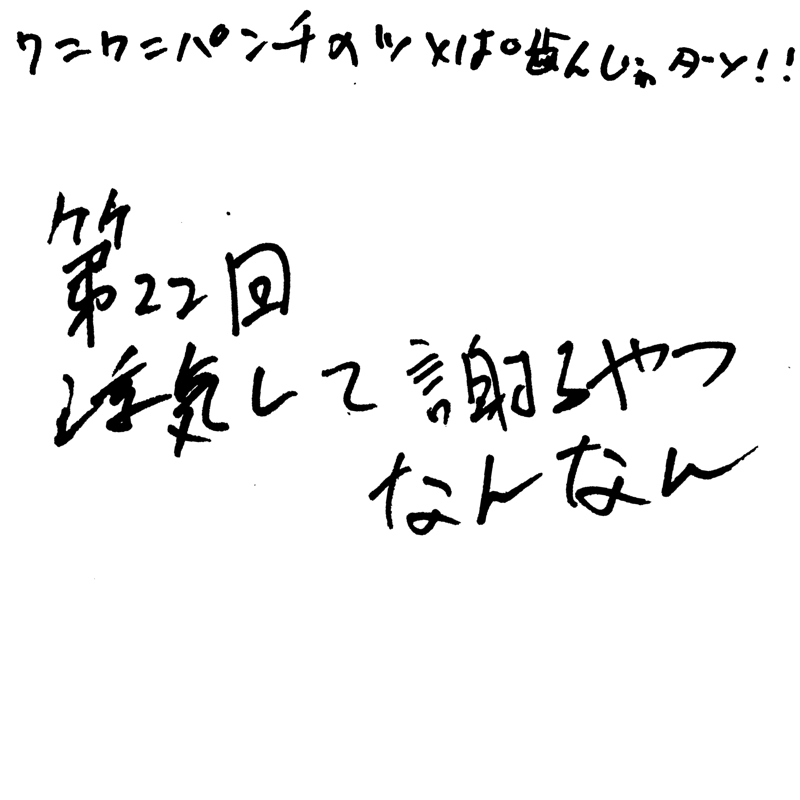 クニクニパンチのツメは噛んじゃターン!!
第22回
浮気して謝るやつ
なんなん